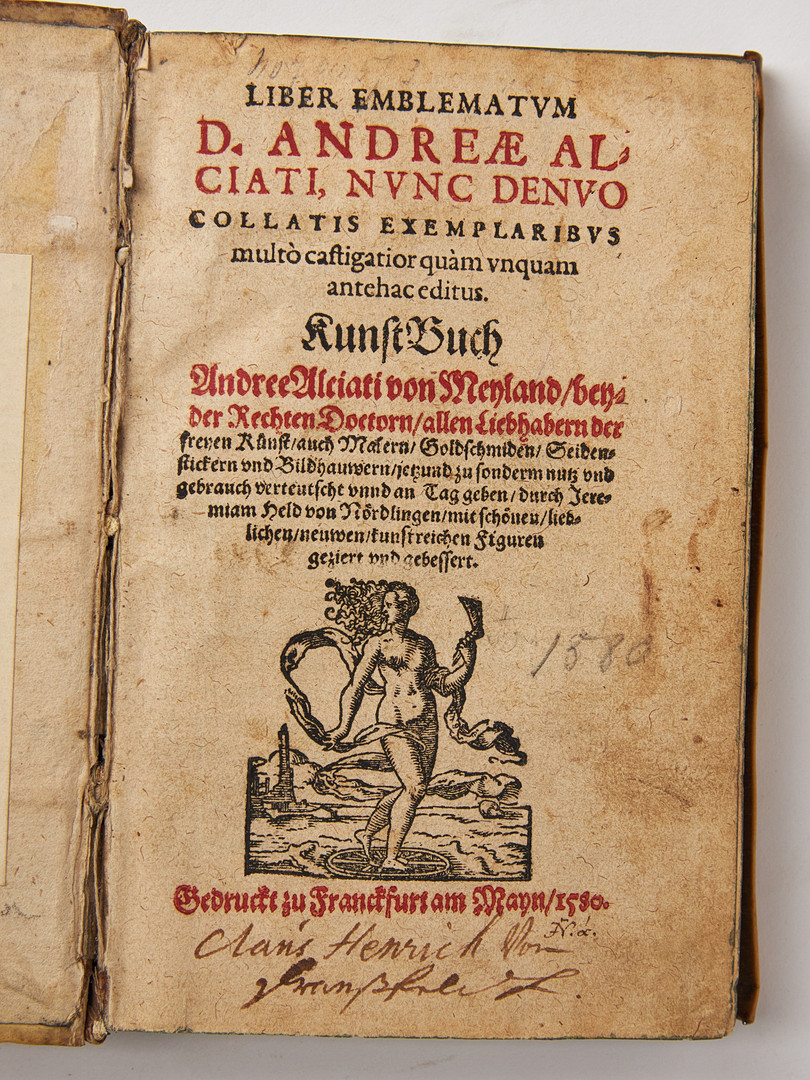 LIBER EMBLEMATVM
D. ANDREÆ AL-
CIATI, NVNC DENVO
COLLATIS EXEMPLARIBVS
multò castigatior quàm vnquam
antehac editus.
KunstBuch
Andree Alciati von Meyland/bey-
der Rechten Doctorn/allen Liebhabern der
freyen Künst/auch Malern/Goldschmiden/Seiden-
stickern vnd Bildhauwern/jetzund zu sonderm nutz vnd
gebrauch verteutscht vnnd an Tag geben/durch Jere-
miam Held von Nördlingen/mit schönen/lieb-
lichen/neuwen/kunstreichen Figuren
geziert vnd gebessert.
1580
Gedruckt zu Franckfurt am Mayn/1580.
Claus Henrich Von